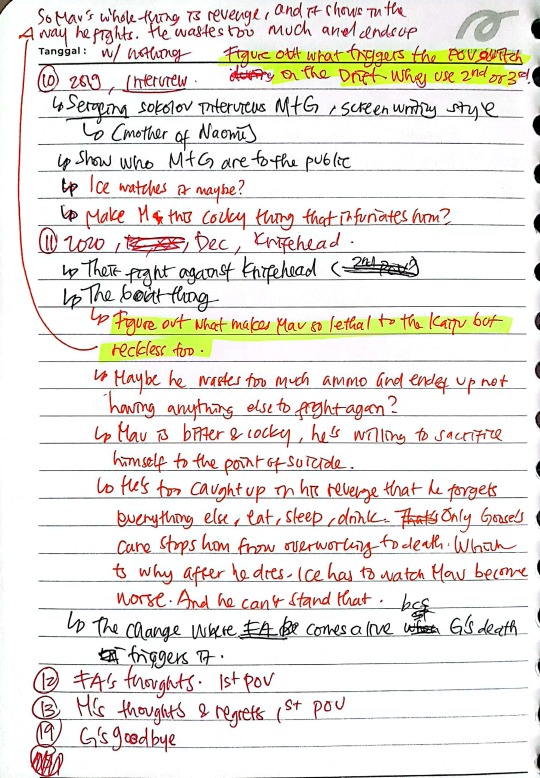 So Mav's whole thing is revenge, and it shows in the
way he fights. He wastes too much and ends up
Tanggal: w/ nothing
Figure out what triggers the POV switch
in the Drift. Why use 2nd or 3rd.
10 2019, Interview.
↳ Seraphina Sokolov interviews M+G, screen writing style
↳ (mother of Naomi)
↳ Show who M+G are to the public
↳ Ice watches it maybe?
↳ Make M this cocky thing that infuriates him?
11 2020, Dec, Knifehead.
↳ Their fight against Knifehead
↳ The boat thing
↳ Figure out what makes Mav so lethal to the Kaiju but
reckless too.
↳ Maybe he wastes too much ammo and ends up not
having anything else to fight again?
↳ Mav is bitter & cocky, he's willing to sacrifice
himself to the point of suicide.
↳ He's too caught up in his revenge that he forgets
everything else, eat, sleep, drink. Only Goose's
care stops him from overworking to death. Which
is why after he dies. Ice has to watch Mav become
worse. And he can't stand that.
↳ The change where EA comes alive bcs G's death
triggers it.
12 EA's thoughts. 1st POV
13 M's thoughts & regrets 1st POV
14 G's goodbye